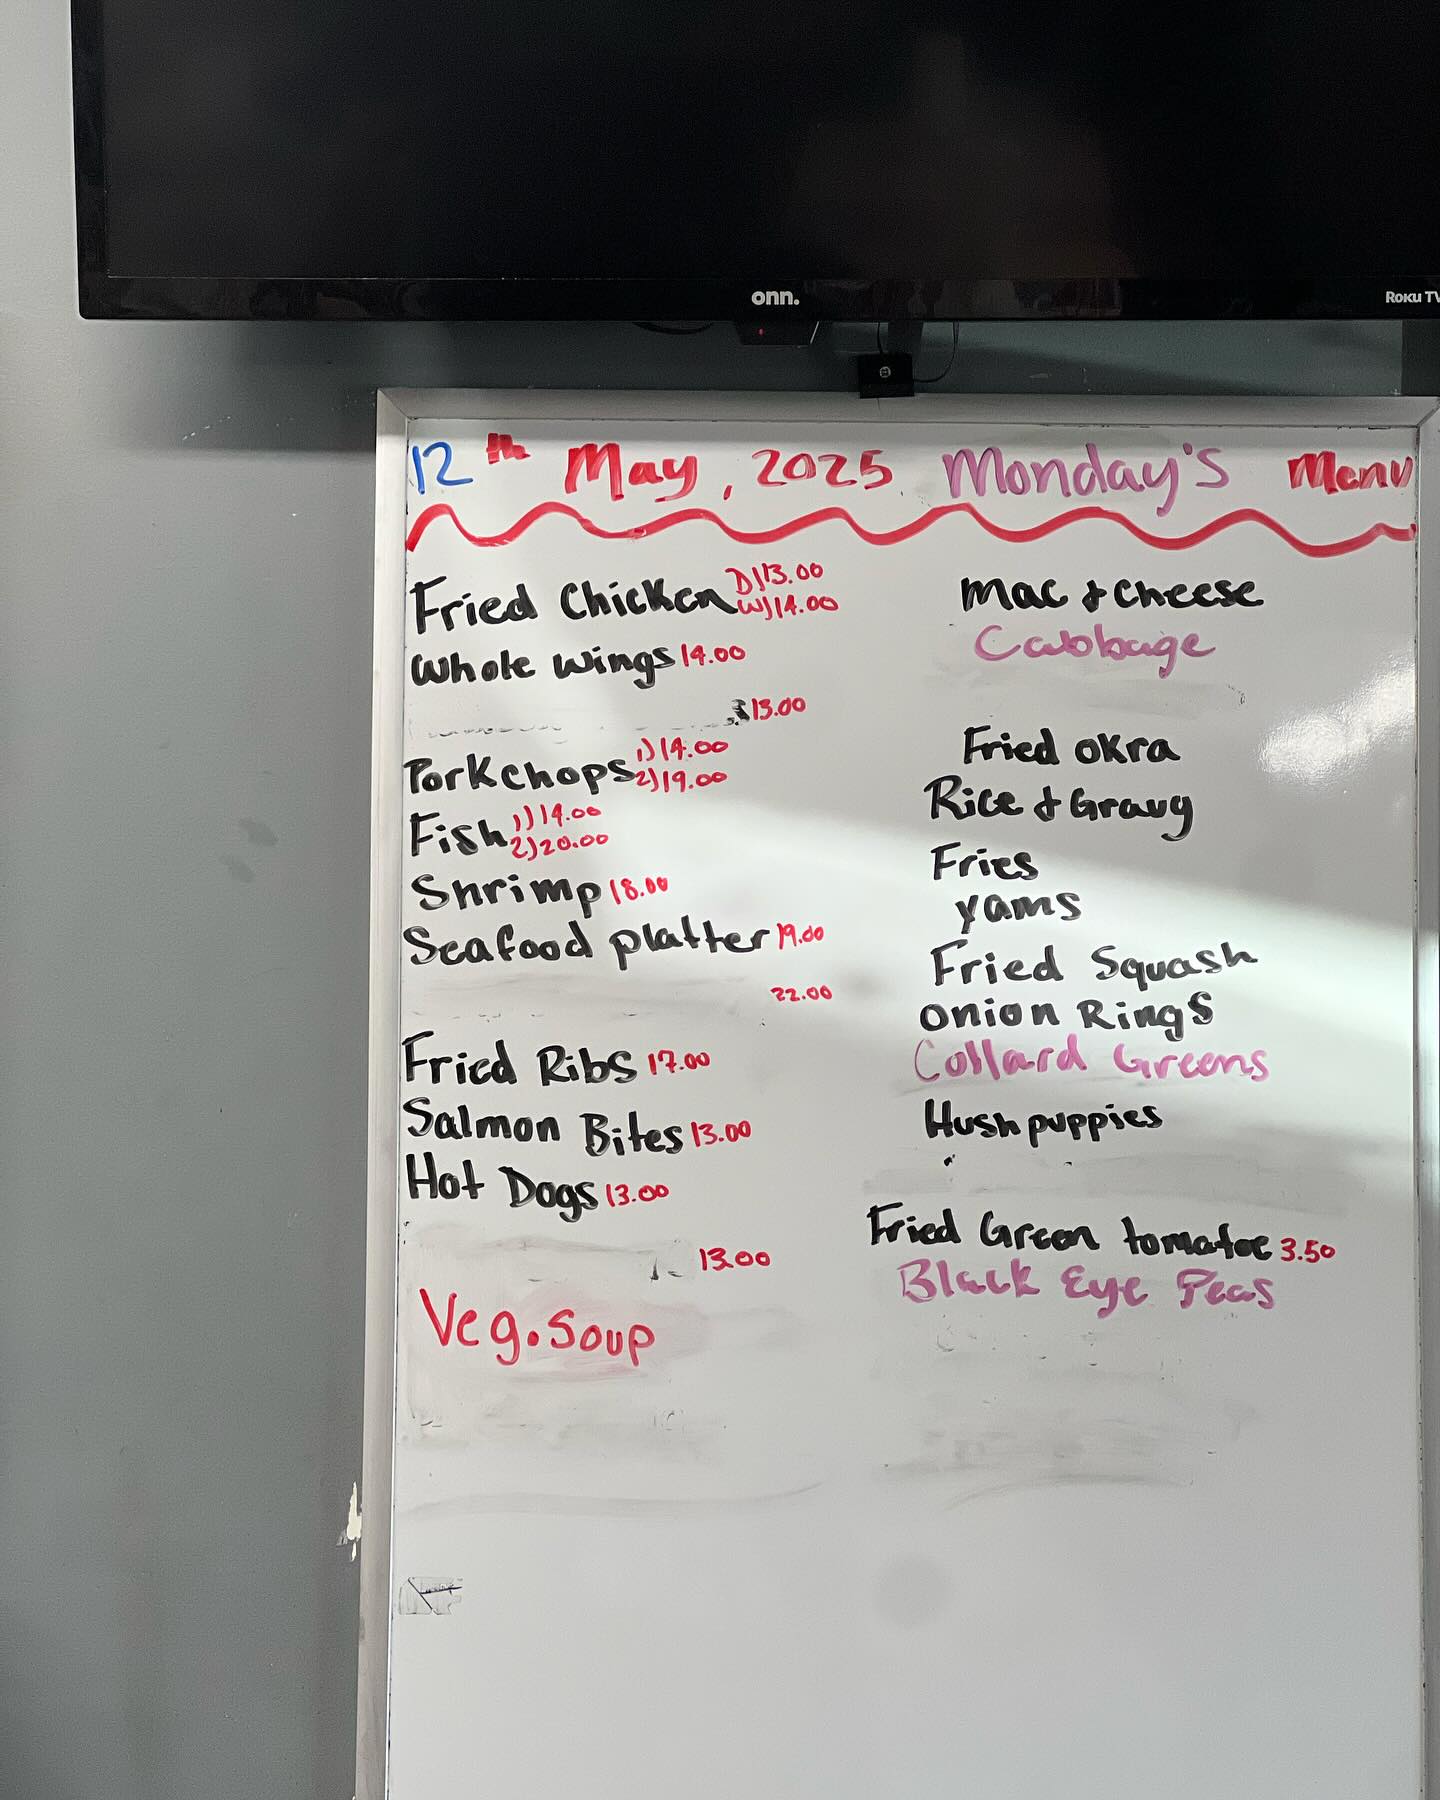 onn.
Roku TV
12th May, 2025 Monday's Menu
Fried Chicken D)13.00
W)14.00
Whole Wings 14.00
13.00
Porkchops 1)14.00
2)19.00
Fish 1)14.00
2)20.00
Shrimp 18.00
Seafood platter 19.00
22.00
Fried Ribs 17.00
Salmon Bites 13.00
Hot Dogs 13.00
13.00
Veg. Soup
Mac & Cheese
Cabbage
Fried okra
Rice & Gravy
Fries
yams
Fried Squash
Onion Rings
Collard Greens
Hushpuppies
Fried Green tomatoe 3.50
Black Eye Peas